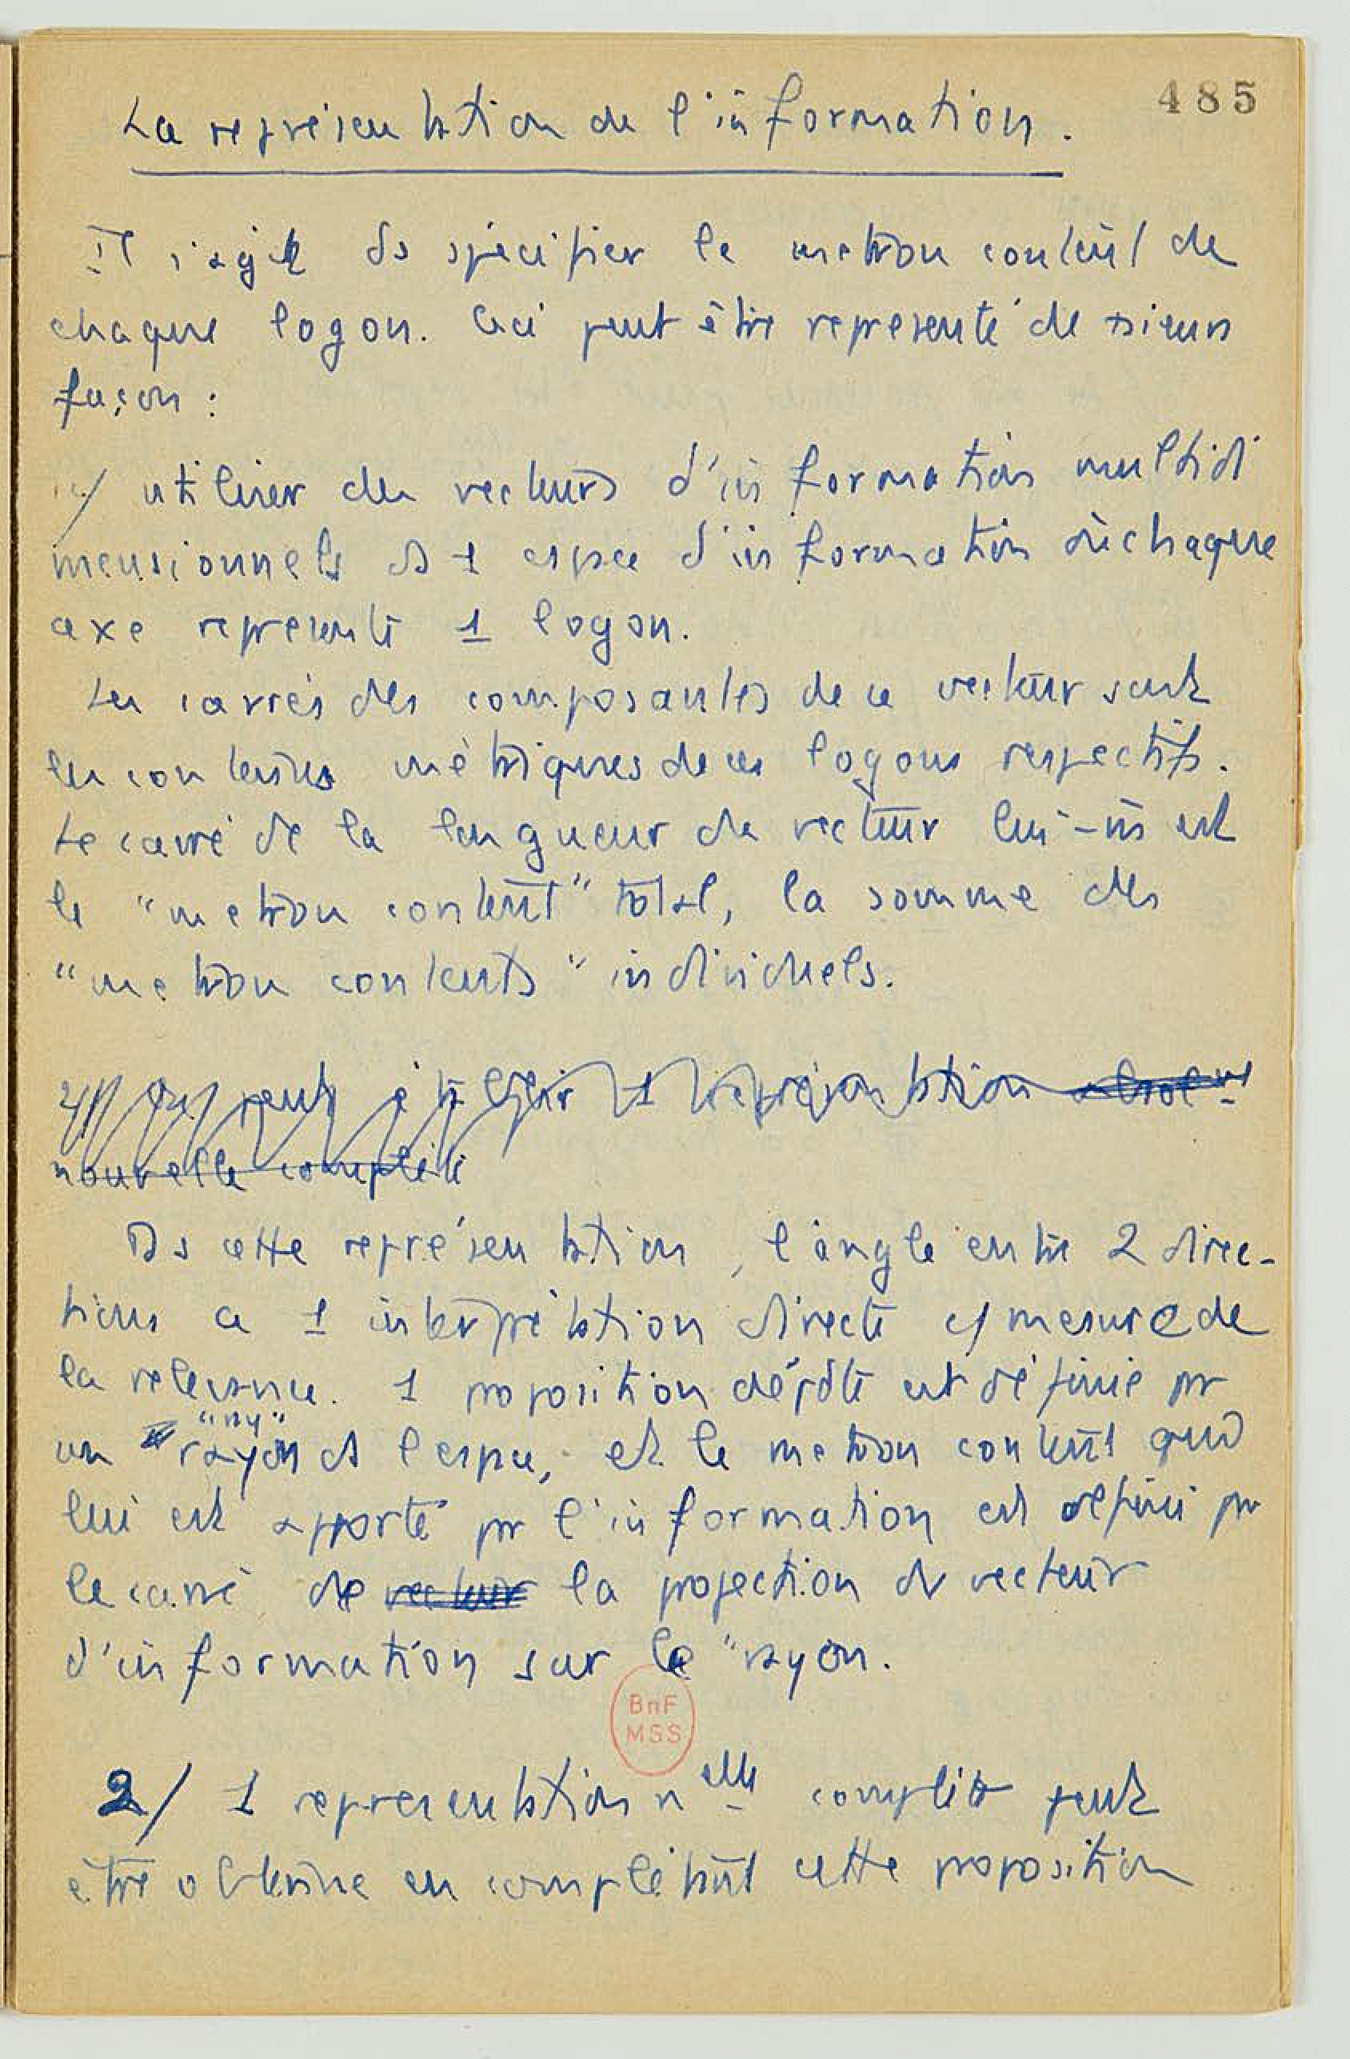 485
La représentation de l'information.
Il s'agit de spécifier le metron content de
chaque logon. Ceci peut être representé de
façon :
1/ utiliser des vecteurs d'information multidi
mensionnels ds 1 espce d'information où chaque
axe represente 1 logon.
Les carrés des composantes de ce vecteur sont
les contenus métriques de ces logons respectifs.
Le carré de la longueur du vecteur lui-m̄ est
le "metron content" total, la somme des
"metron contents" individuels.
2/ On peut établir 1 représentation
nouvelle complète
Ds cette représentation, l'angle entre 2 direc-
tions a 1 interprétation directe c/ mesure de
la relevance. 1 proposition dépdte est définie pr
"ray"
un rayon ds l'espce, et le metron content qui
lui est apporté pr l'information est défini pr
le carré de vecteur la projection du vecteur
d'information sur le "rayon.
BnF
MSS
2/ 1 representation nelle complète peut
être obtenue en complétant cette proposition